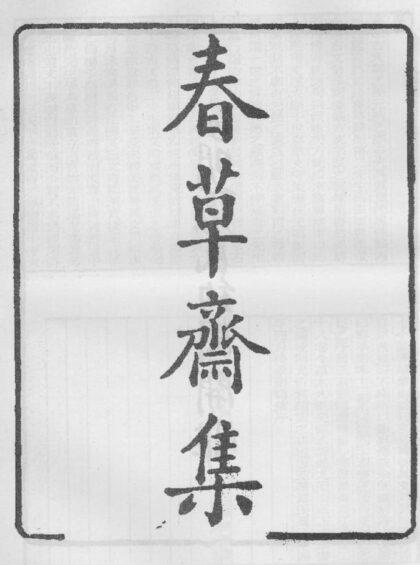 春草齋集